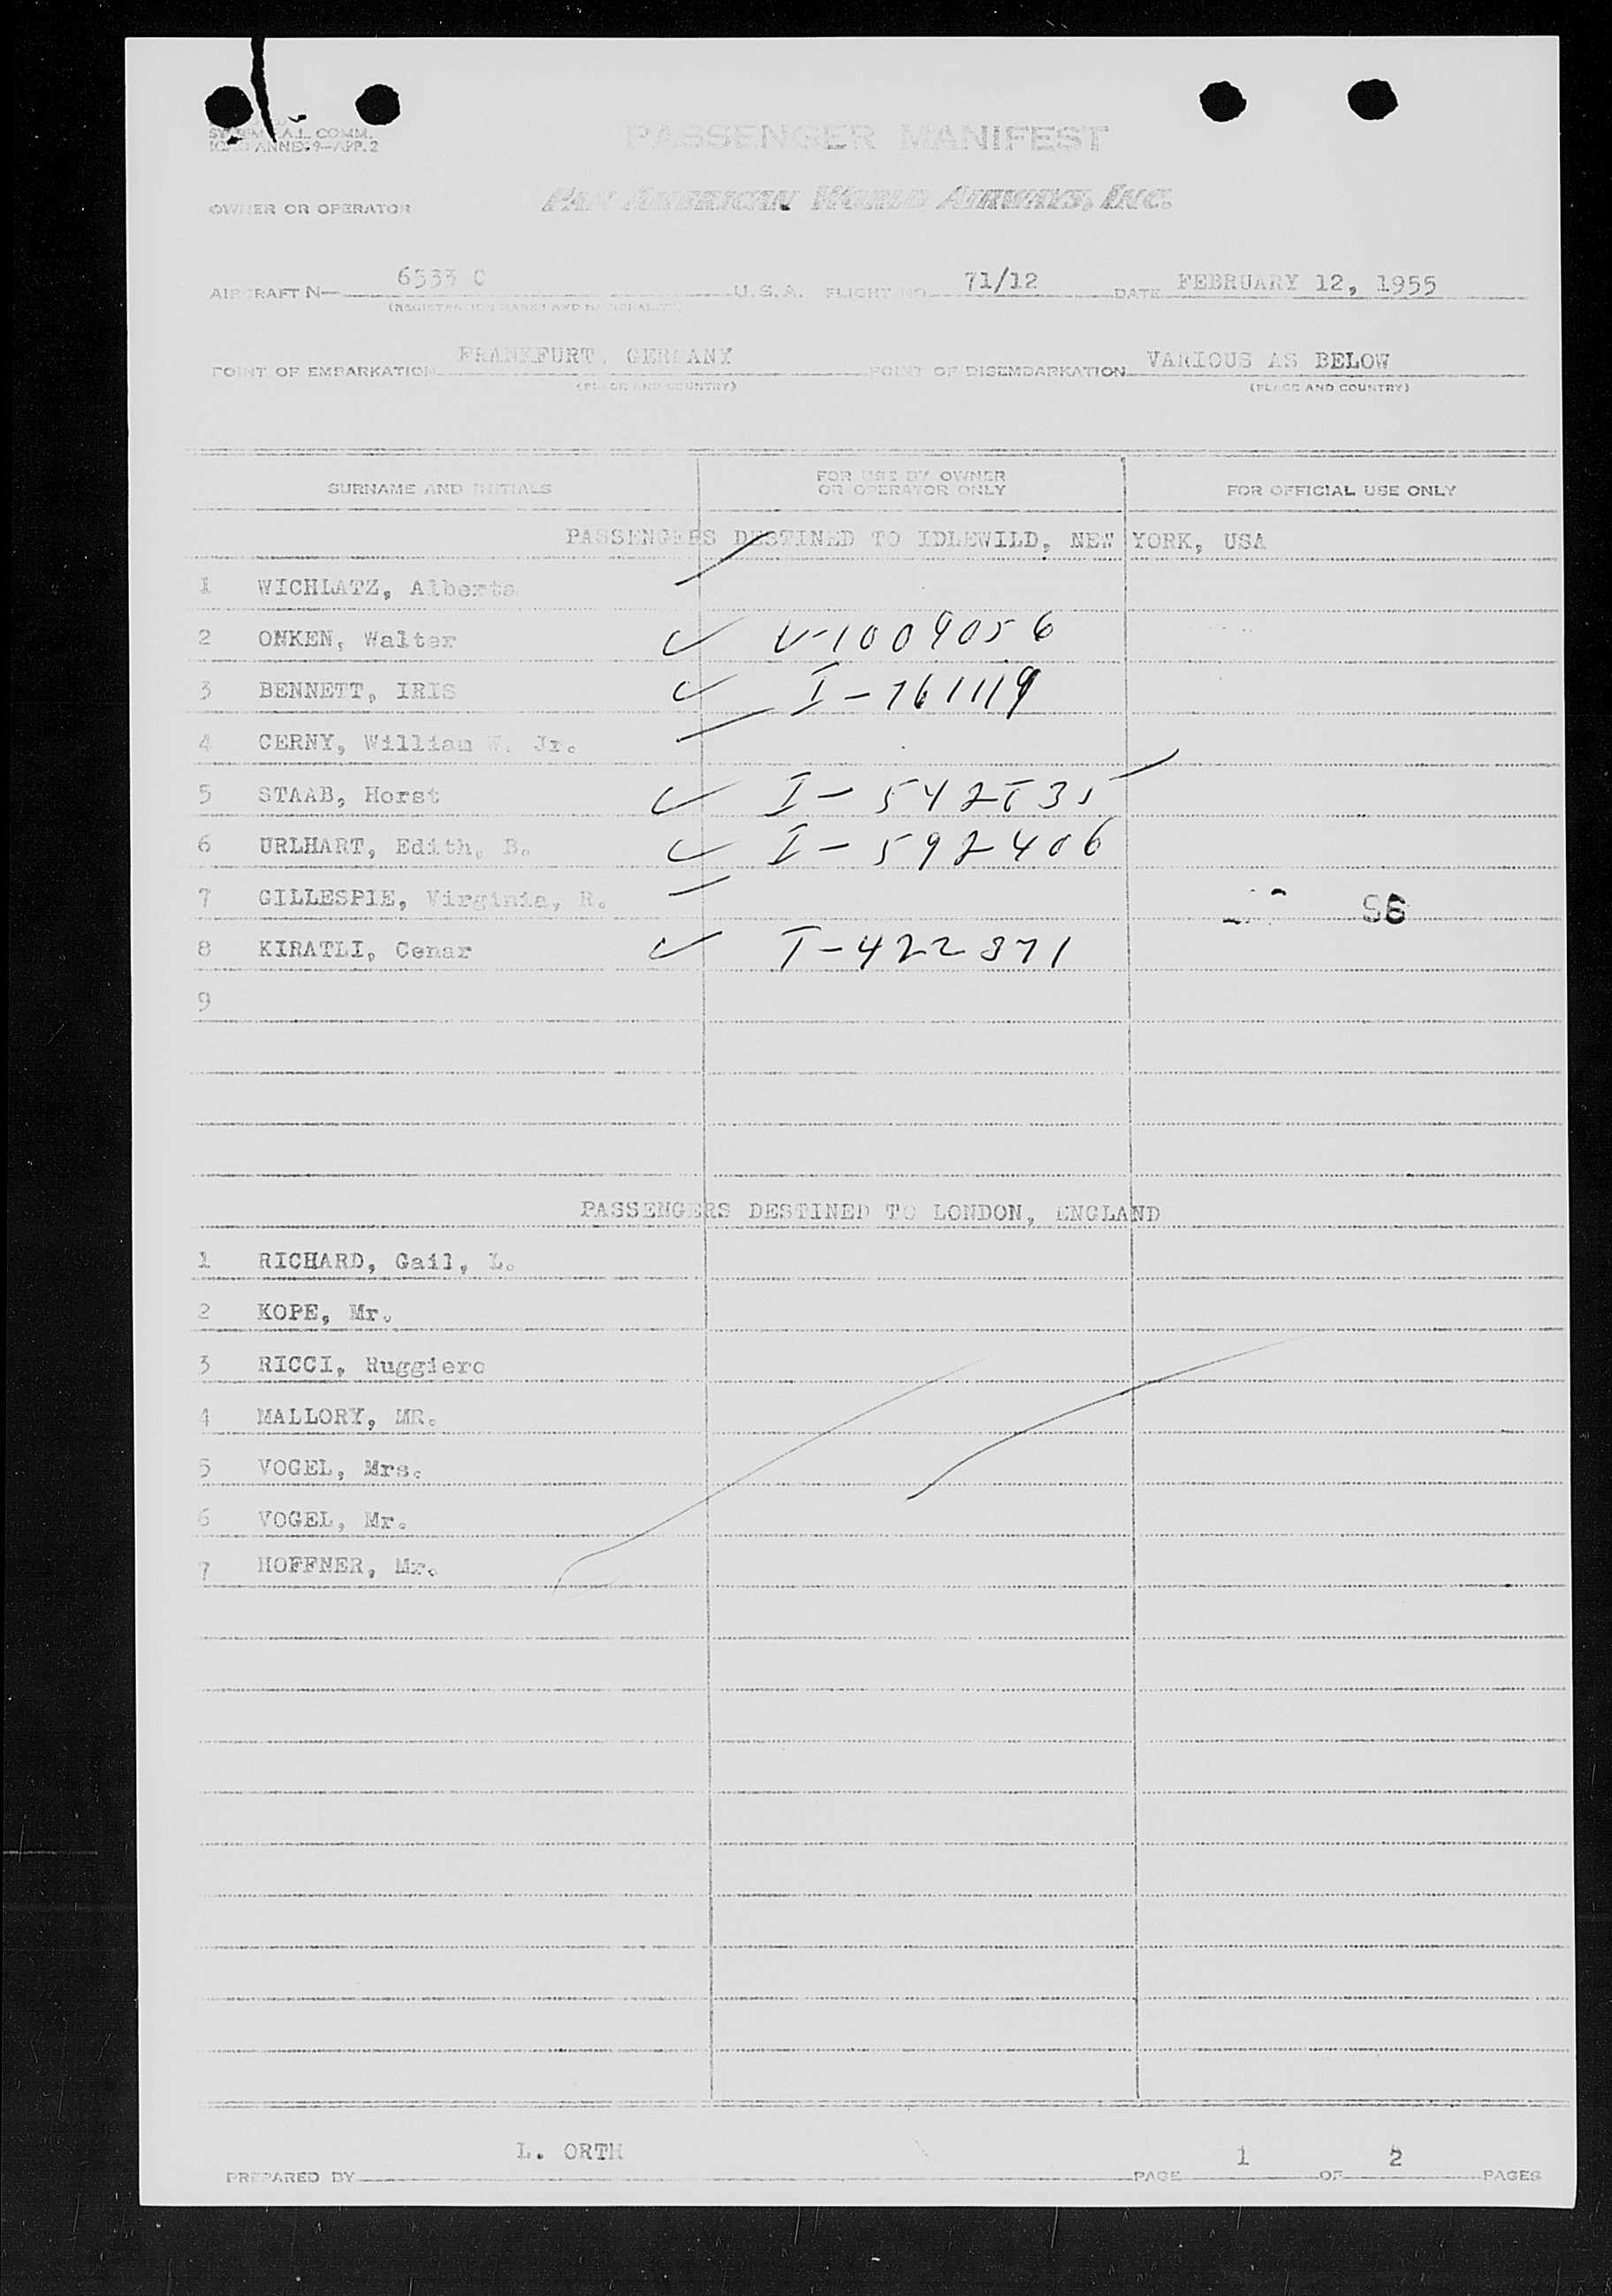 SYSTEM F.A.L. COMM.
ICAO ANNEX 9—APP. 2
PASSENGER MANIFEST
OWNER OR OPERATOR PAN AMERICAN WORLD AIRWAYS, INC.
AIRCRAFT N— 6533 C U.S.A. FLIGHT NO. 71/12 DATE FEBRUARY 12, 1955
(REGISTRATION MARKS AND NATIONALITY)
POINT OF EMBARKATION FRANKFURT, GERMANY POINT OF DISEMBARKATION VARIOUS AS BELOW
(PLACE AND COUNTRY) (PLACE AND COUNTRY)
SURNAME AND INITIALS FOR USE BY OWNER OR OPERATOR ONLY FOR OFFICIAL USE ONLY
PASSENGERS DESTINED TO IDLEWILD, NEW YORK, USA
1 WICHLATZ, Alberta
2 ONKEN, Walter V-1009056
3 BENNETT, IRIS I-761119
4 CERNY, William W. Jr.
5 STAAB, Horst I-542535
6 URLHART, Edith, B. I-592406
7 GILLESPIE, Virginia, R. 96
8 KIRATLI, Cenar I-422871
9
PASSENGERS DESTINED TO LONDON, ENGLAND
1 RICHARD, Gail, L.
2 KOPE, Mr.
3 RICCI, Ruggiero
4 MALLORY, MR.
5 VOGEL, Mrs.
6 VOGEL, Mr.
7 HOFFNER, Mr.
PREPARED BY L. ORTH PAGE 1 OF 2 PAGES